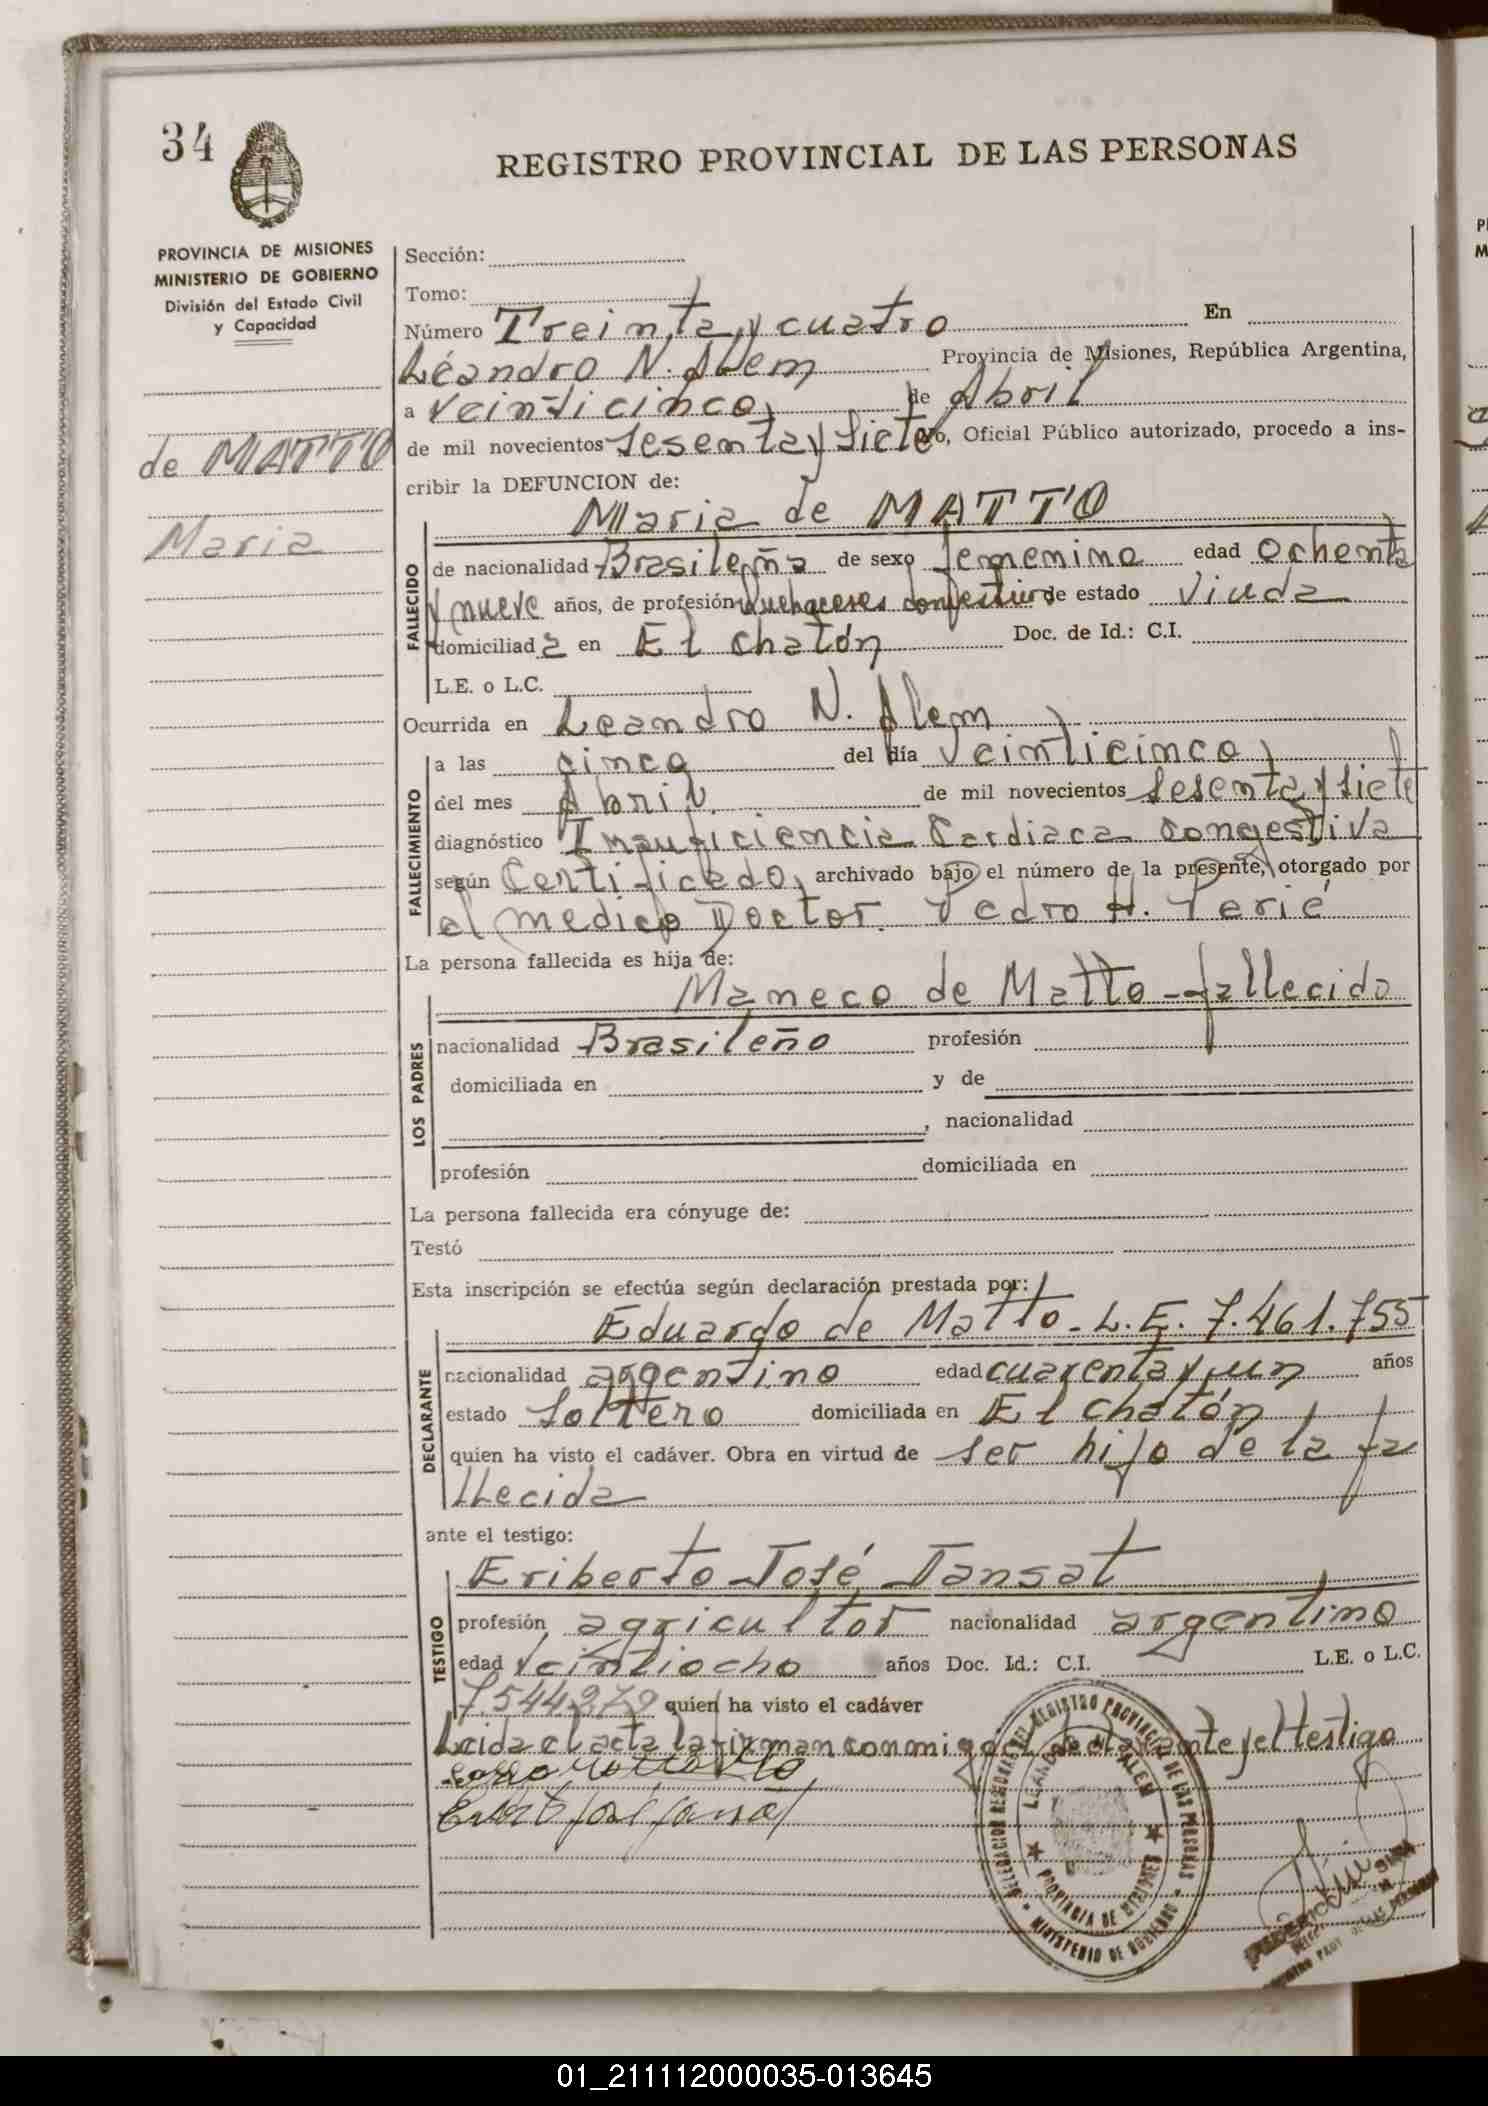 34
REGISTRO PROVINCIAL DE LAS PERSONAS
PROVINCIA DE MISIONES
MINISTERIO DE GOBIERNO
División del Estado Civil
y Capacidad
de MATTO
Maria
Sección:
Tomo:
Número Treinta y cuatro En
Léandro N. Alem Provincia de Misiones, República Argentina,
a veinticinco, de Abril
de mil novecientos sesenta y siete yo, Oficial Público autorizado, procedo a ins-
cribir la DEFUNCION de:
Maria de MATTO
FALLECIDO
de nacionalidad Brasileña de sexo femenino edad ochenta
y nueve años, de profesión quehaceres de estado viuda
domiciliada en El chatón Doc. de Id.: C.I.
L.E. o L.C.
Ocurrida en Leandro N. Alem
FALLECIMIENTO
a las cinco del día veinticinco,
del mes Abril de mil novecientos sesenta y siete
diagnóstico Insuficiencia Cardiaca Congestiva
según Certificado, archivado bajo el número de la presente, otorgado por
el medico Doctor. Pedro H. Perié
La persona fallecida es hija de:
LOS PADRES
Maneco de Matto - fallecido
nacionalidad Brasileño profesión
domiciliada en y de
, nacionalidad
profesión domiciliada en
La persona fallecida era cónyuge de:
Testó
Esta inscripción se efectúa según declaración prestada por:
DECLARANTE
Eduardo de Matto - L.E. 7.461.755
nacionalidad argentino edad cuarenta y un años
estado Soltero domiciliada en El chatón
quien ha visto el cadáver. Obra en virtud de ser hijo de la fa
llecida
ante el testigo:
TESTIGO
Eriberto José Jansat
profesión agricultor nacionalidad argentino
edad veintiocho años Doc. Id.: C.I. L.E. o L.C.
quien ha visto el cadáver
Leida el acta la firman conmigo el declarante y el testigo
DELEGACION REGIONAL DEL REGISTRO PROVINCIAL DE LAS PERSONAS
LEANDRO N. ALEM
PROVINCIA DE MISIONES
MINISTERIO DE GOBIERNO
01_211112000035-013645